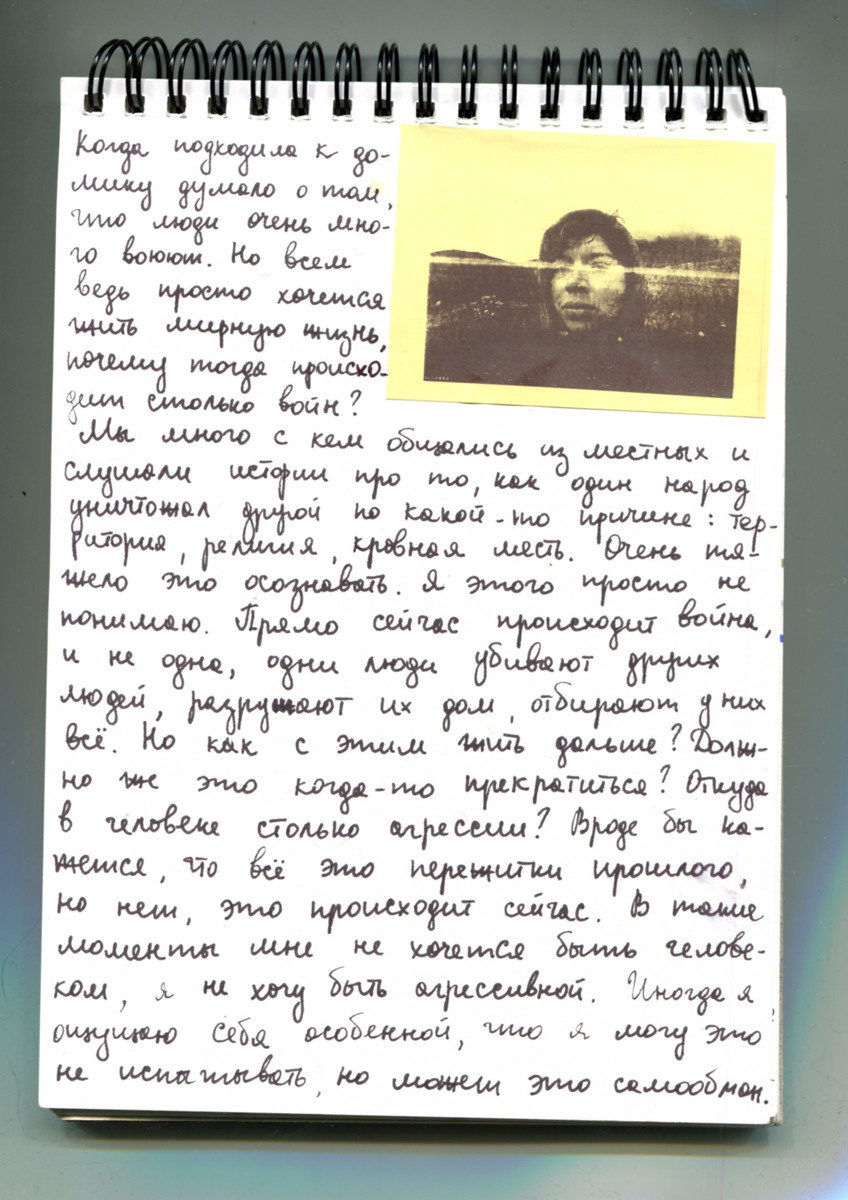 Когда подходила к до-
мику думала о том,
что люди очень мно-
го воюют. Но всем
ведь просто хочется
жить мирную жизнь,
почему тогда происхо-
дит столько войн?
Мы много с кем общались из местных и
слушали истории про то, как один народ
уничтожал другой по какой-то причине: тер-
ритория, религия, кровная месть. Очень тя-
жело это осознавать. Я этого просто не
понимаю. Прямо сейчас происходит война,
и не одна, одни люди убивают других
людей, разрушают их дом, отбирают у них
всё. Но как с этим жить дальше? Долж-
но же это когда-то прекратиться? Откуда
в человеке столько агрессии? Вроде бы ка-
жется, что всё это пережитки прошлого,
но нет, это происходит сейчас. В такие
моменты мне не хочется быть челове-
ком, я не хочу быть агрессивной. Иногда я
ощущаю себя особенной, что я могу это
не испытывать, но может это самообман.